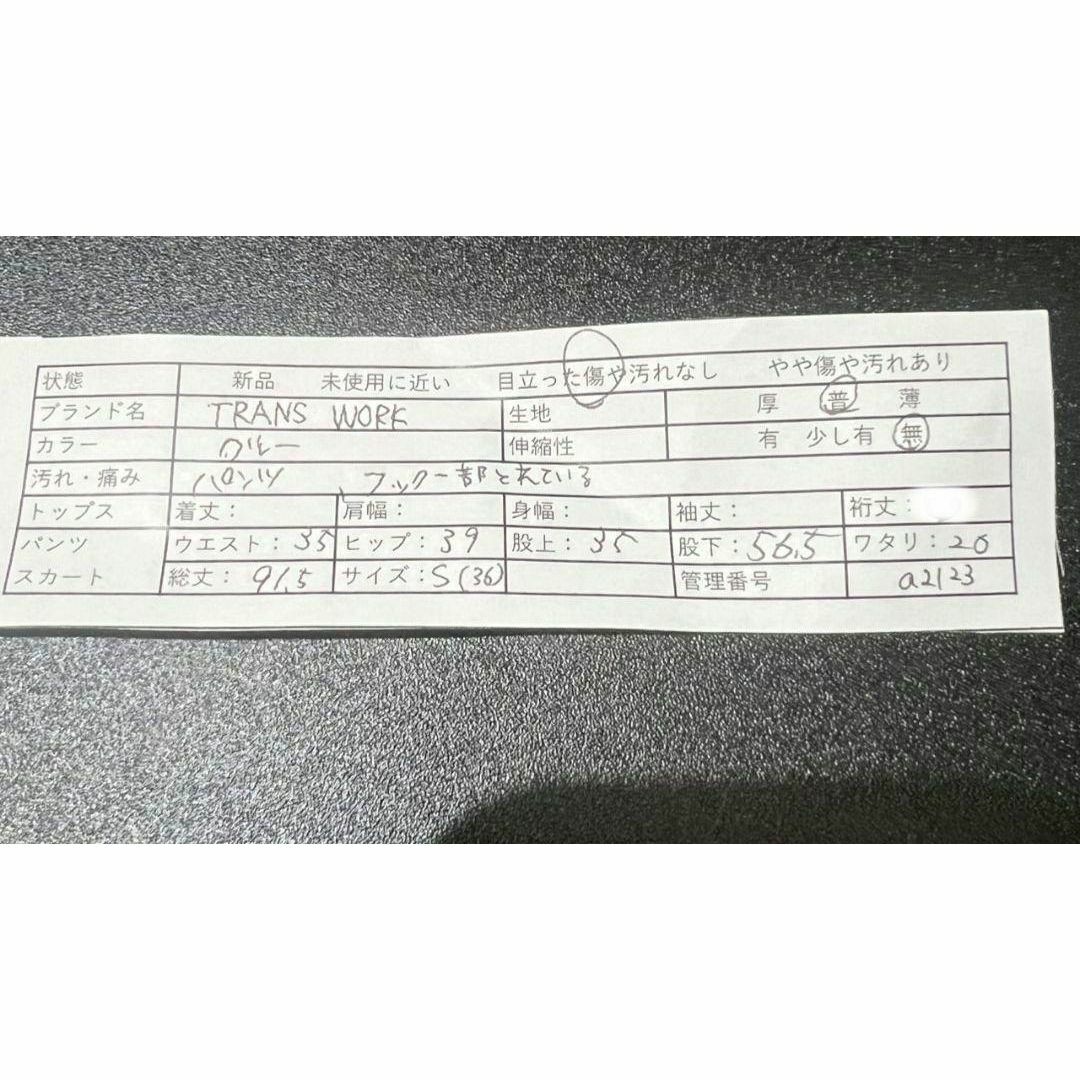 状態 新品 未使用に近い 目立った傷や汚れなし やや傷や汚れあり
ブランド名 TRANS WORK 生地 厚 普 薄
カラー グレー 伸縮性 有 少し有 無
汚れ・痛み パンツ、フック一部とれている
トップス 着丈: 肩幅: 身幅: 袖丈: 裄丈:
パンツ ウエスト: 35 ヒップ: 39 股上: 35 股下: 56.5 ワタリ: 26
スカート 総丈: 91.5 サイズ: S (36) 管理番号 a2123